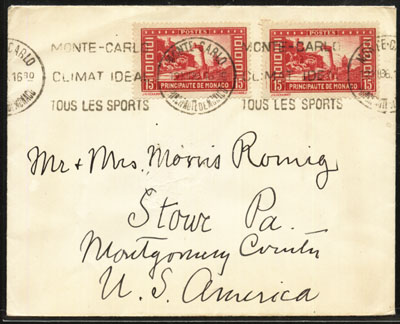 MONTE-CARLO
CLIMAT IDEAL
TOUS LES SPORTS
MONTE-CARLO
CLIMAT IDEAL
TOUS LES SPORTS
MONTE-CARLO
POSTES
15 15
PRINCIPAUTE DE MONACO
POSTES
15 15
PRINCIPAUTE DE MONACO
Mr & Mrs. Morris Romig
Stowe Pa.
Montgomery County
U. S. America